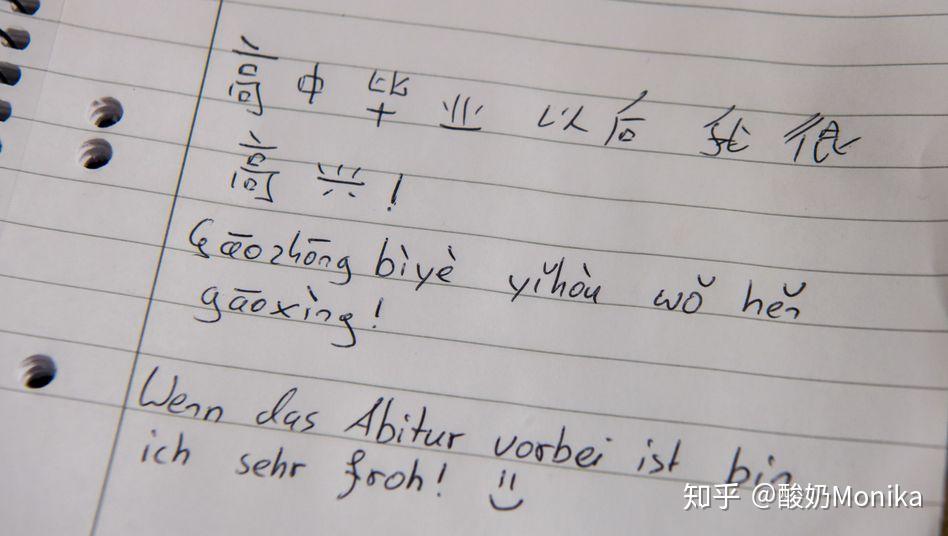 高中毕业以后我很
高兴!
Gāozhōng bìyè yǐhòu wǒ hěn
gāoxìng!
Wenn das Abitur vorbei ist bin
ich sehr froh!
知乎 @酸奶Monika